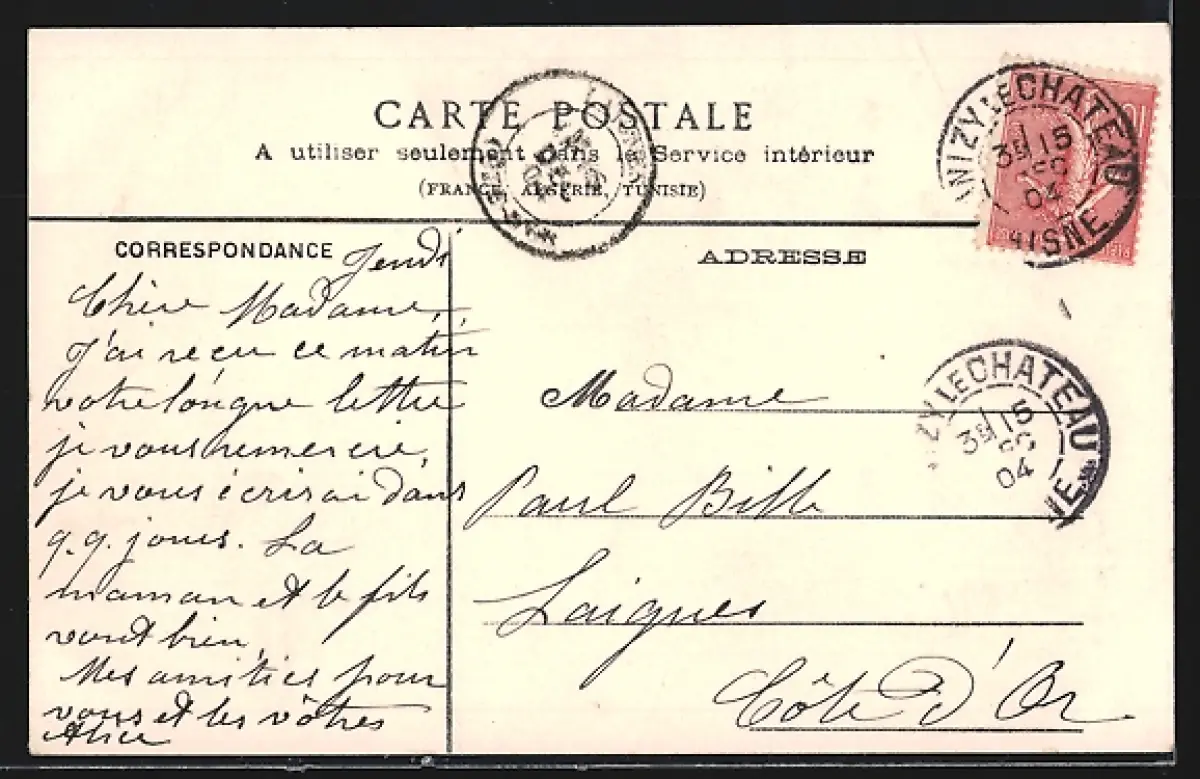 CARTE POSTALE
A utiliser seulement dans le Service intérieur
(FRANCE, ALGÉRIE, TUNISIE)
ANIZY LE CHATEAU
3E 15
DEC
04
AISNE
CORRESPONDANCE
Jeudi
Chère Madame,
J'ai reçu ce matin
votre longue lettre
je vous remercie,
je vous écrirai dans
q.q. jours. La
maman et le fils
vont bien,
Mes amitiés pour
vous et les vôtres
Alice
ADRESSE
Madame
Paul
Laignes
Côte d'Or
ZY LE CHATEAU
3E 15
04
NE